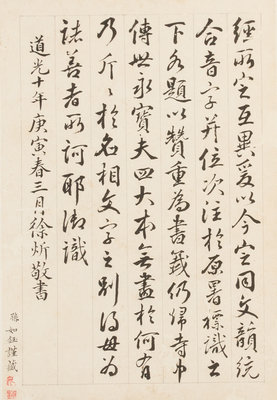 經所定互異爰以今定同文韻統
合音字并位次注於原署標識之
下各題以贊重為書籤仍歸寺中
傳世永寶夫四大本無畫於何有
乃斤〻於名相文字之別得毋為
誌善者所訶耶御識
道光十年庚寅春三月徐炘敬書
孫如鈺謹藏